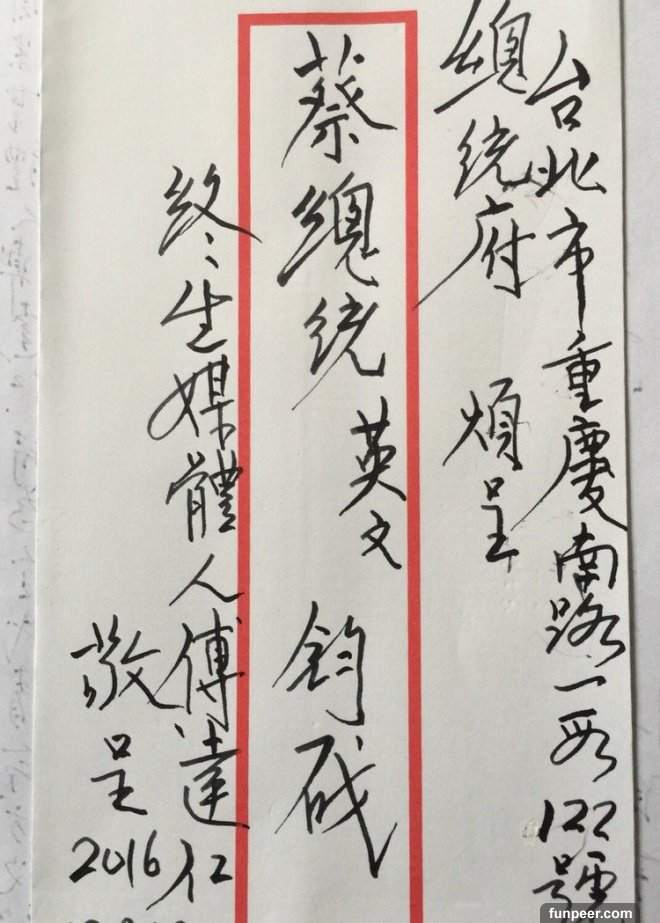 台北市重慶南路一段122號
總統府 煩呈
蔡總統英文 鈞啟
終生媒體人傅達仁
敬呈
2016
funpeer.com